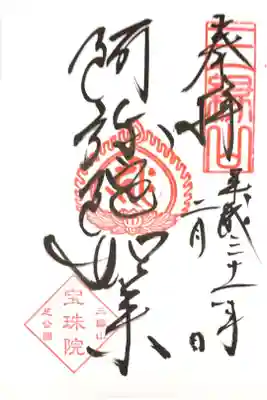 奉拝
三縁山
平成二十二年
二月 日
阿弥陀如来
三縁山
宝珠院
芝公園